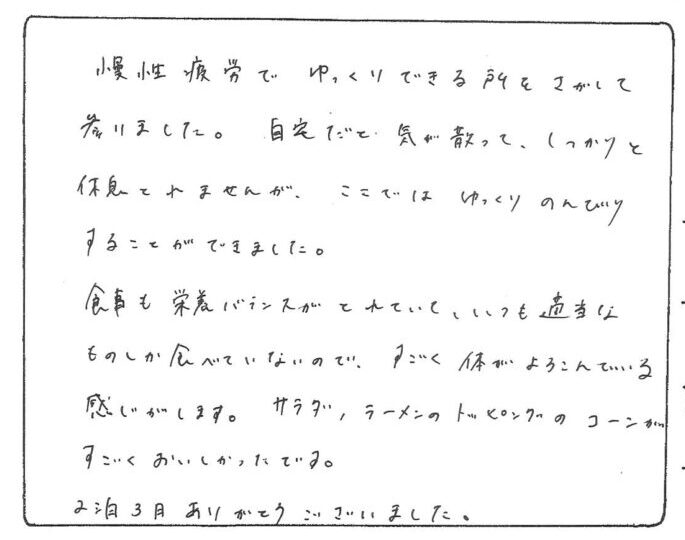 慢性疲労で ゆっくりできる所をさがして
参りました。 自宅だと気が散って、しっかりと
休息とれませんが、ここでは ゆっくり のんびり
することができました。
食事も栄養バランスがとれていて、いつも適当な
ものしか食べていないので、すごく 体がよろこんでいる
感じがします。 サラダ、ラーメンのトッピングのコーンが
すごく おいしかったです。
2泊3日 ありがとうございました。